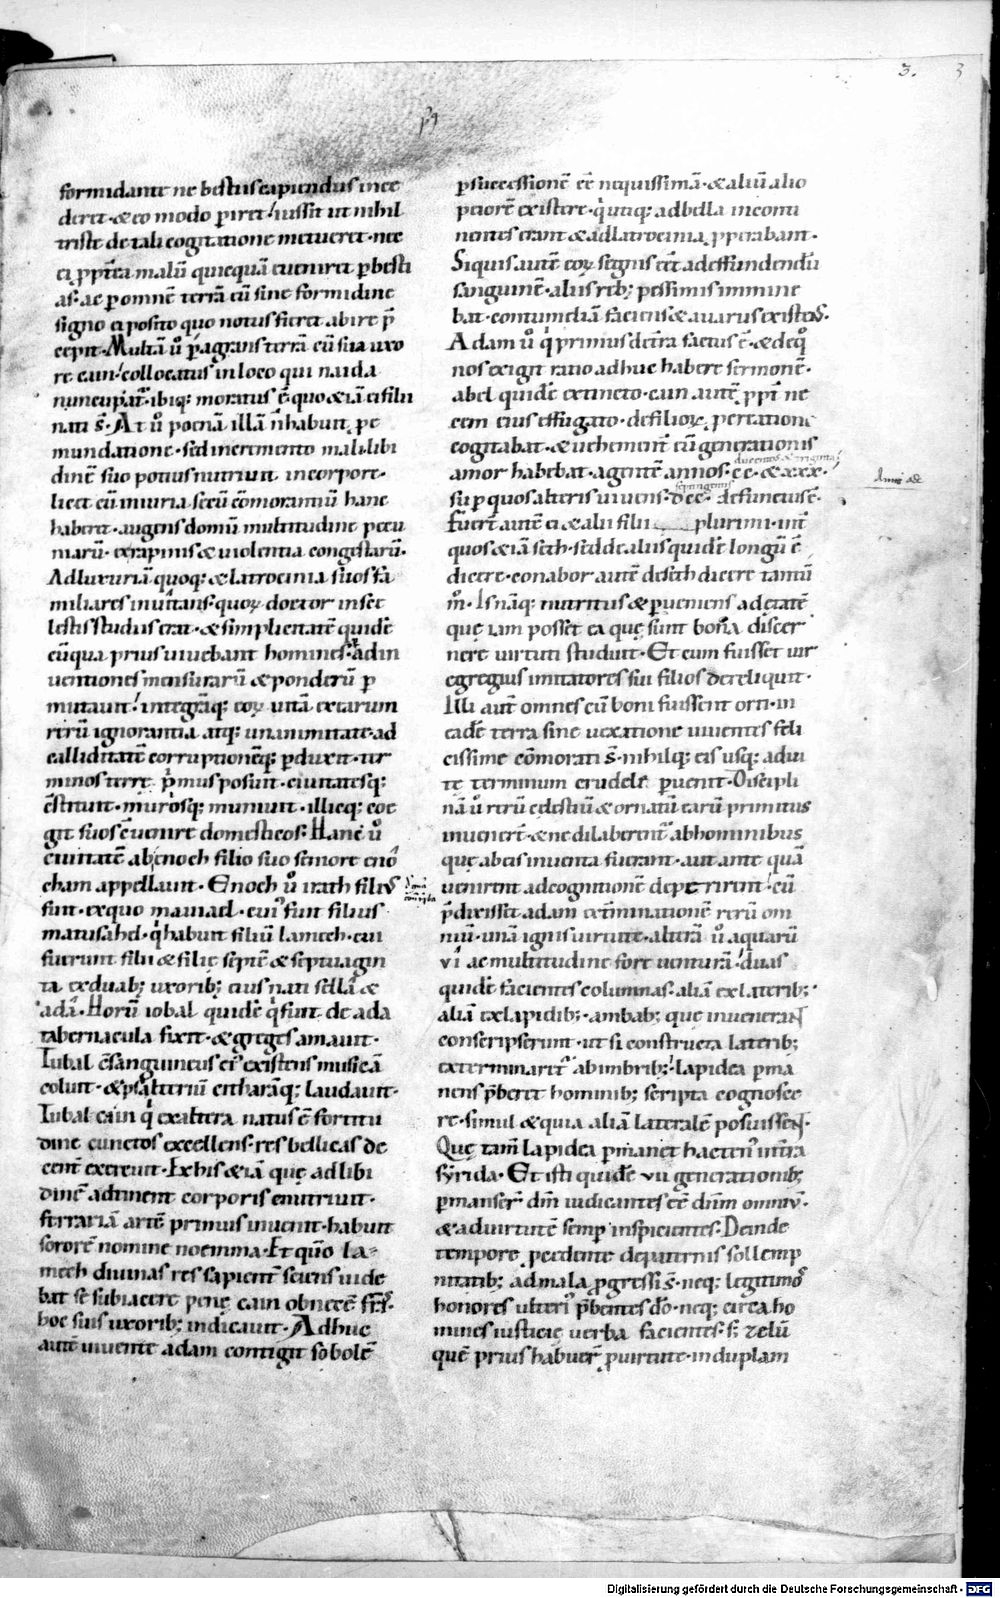 3. 3
formidante ne bestiis capiendus ince
deret · & eo modo periret! iussit ut nihil
triste de tali cogitatione metueret · nec
ei ꝓpt̄ea malū quicquā eueniret ꝑ besti
as · ac ꝑ omnē terrā cū sine formidine
signo ei posito quo notus fieret abire p̄
cepit · Multā ū ꝑagrans terrā cū sua uxo
re cain! collocatus in loco qui naida
nuncupat̄ · ibiq; moratus ē · quo & iā ei filii
nati s̄ · At ū poenā illā n̄ habuit ꝓ e
mundatione · sed incremento mali libi
dinē suo potius nutriuit in corpore ·
licet cū iniuria secū cōmorantiū hanc
haberet · augens domū multitudine pecu
niarū · ex rapinis & uiolentia congestarū ·
Ad luxuriā quoq; & latrocinia suos fa
miliares inuitans · quoꝝ doctor in sce
lestis studiis erat · & simplicitatē quidē
cū qua prius uiuebant homines · ad in
uentiones mensurarū & ponderū ꝑ
mutauit! integrāq; eoꝝ uitā ex earum
rerū ignorantia atq; unanimitate ad
calliditatē corruptionēq; ꝑduxit · ter
minos terrę p̄mus posuit · ciuitatesq;
c̄stituit · murosq; muniuit · illicq; coe
git suos c̄uenire domesticos · Hanc ū
ciuitatē ab enoch filio suo seniore eno
cham appellauit · Enoch ū irath filius
fuit · ex quo mauiael · cui fuit filius
matusahel · q̄ habuit filiū lamech · cui
fuerunt filii & filię septē & septuagin
ta ex duab; uxorib; eius nati sella &
ada · Horū iobal quidē q̄ fuit de ada
tabernacula fixit · & greges amauit ·
Iubal c̄sanguineus ei existens musicā
coluit · & psalteriū citharāq; laudauit ·
Tubal cain q̄ ex altera natus ē fortitu
dine cunctos excellens · res bellicas de
center exercuit · Ex his & iā quę ad libi
dinē adtinent corporis enutriuit ·
ferrariā artē primus inuenit · habuit
sororē nomine noemma · Et quō la
mech diuinas res sapient̄ sciens uide
bat se subiacere penę cain ob necē fr̄is ·
hoc suis uxorib; indicauit · Adhuc
autē uiuente adam contigit sobolē
ꝑ successionē cē nequissimā · & aliū alio
peiorē existere · q̄ utiq; ad bella inconti
nentes erant & ad latrocinia ꝓperabant ·
Siquis autē eoꝝ segnis eēt ad effundendū
sanguinē · aliis reb; pessimis immine
bat · contumeliā faciens & auarus existens ·
Adam ū q̄ primus de t̄ra factus ē · & de quo
nos exigit ratio adhuc habere sermonē ·
abel quidē extincto · cain autē ꝓpt̄ ne
cem eius effugato · de filioꝝ ꝑcreatione
cogitabat · & uehement̄ eū generationis
amor habebat · agentē annos · cc · & xxx ·
sup quos alteris uiuens · dcc · defunctus ē ·
Fuerūt autē ei & alii filii plurimi · int̄
quos & iā seth · sed de aliis quidē longū ē
dicere · conabor autē de seth dicere tantū
m̄ · Is nāq; nutritus & ꝑueniens ad ętatē
quę iam posset ea quę sunt bona discer
nere uirtuti studuit · Et cum fuisset uir
egregius imitatores sui filios dereliquit ·
Illi aut̄ omnes cū boni fuissent orti · in
eadē terra sine uexatione uiuentes feli
cissime cōmorati s̄ · nihilq; eis usq; ad ui
tę terminum crudele ꝓuenit · Discipli
nā ū rerū cęlestiū & ornatū earū primitus
inuenert̄ · & ne dilaberent̄ ab hominibus
quę ab eis inuenta fuerant · aut ante quā
uenirent ad cognitionē deperirent! cū
p̄dixisset adam ext̄minationē rerū om
niū · unā ignis uirtute · alterā ū aquarū
vi ac multitudine fore uenturā! duas
quidē facientes columnas · aliā ex laterib; ·
aliā ex lapidib; · ambab; quę inuenerant
conscripserunt · ut si constructa laterib;
exterminaret̄ ab imbrib; · lapidea ꝑma
nens p̄beret hominib; scripta cognosce
re · simul & quia aliā lateralē posuissent ·
Quę tam̄ lapidea ꝑmanet hactenus in t̄ra
syrida · Et isti quidē vii generationib;
ꝑmanser̄ dm̄ iudicantes eē dn̄m omniū ·
& ad uirtutē semp inspicientes · Deinde
tempore ꝓcedente de paternis sollemp
nitatib; ad mala ꝓgressi s̄ · neq; legitimos
honores ulteri p̄bentes dō · neq; circa ho
mines iusticię uerba facientes · s; zelū
quē prius habuer̄ ꝓ uirtute · in duplam
Digitalisierung gefördert durch die Deutsche Forschungsgemeinschaft - DFG